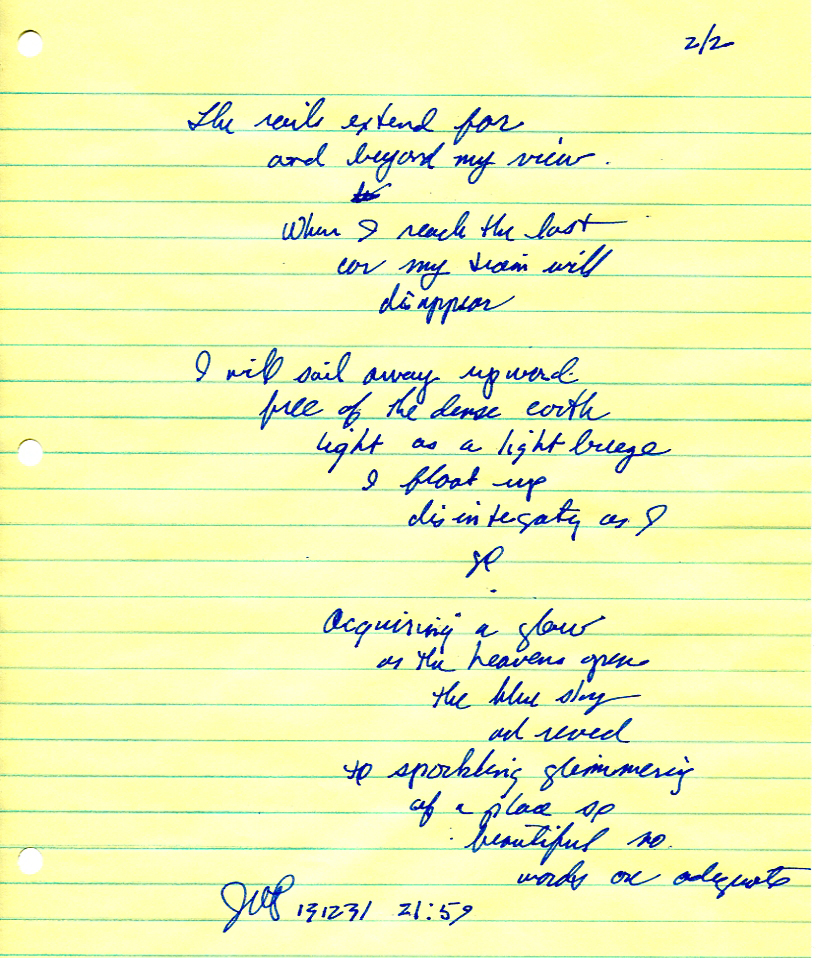 2/2
The rails extend far
and beyond my view.
When I reach the last
car my train will
disappear
I will sail away upward
free of the dense earth
light as a light breeze
I float up
disintegratig as I
go
Acquiring a glow
as the heavens open
the blue sky
ad reveal
to sparkling glimmering
of a place so
beautiful no
words are adequate
JWP 131231 21:59